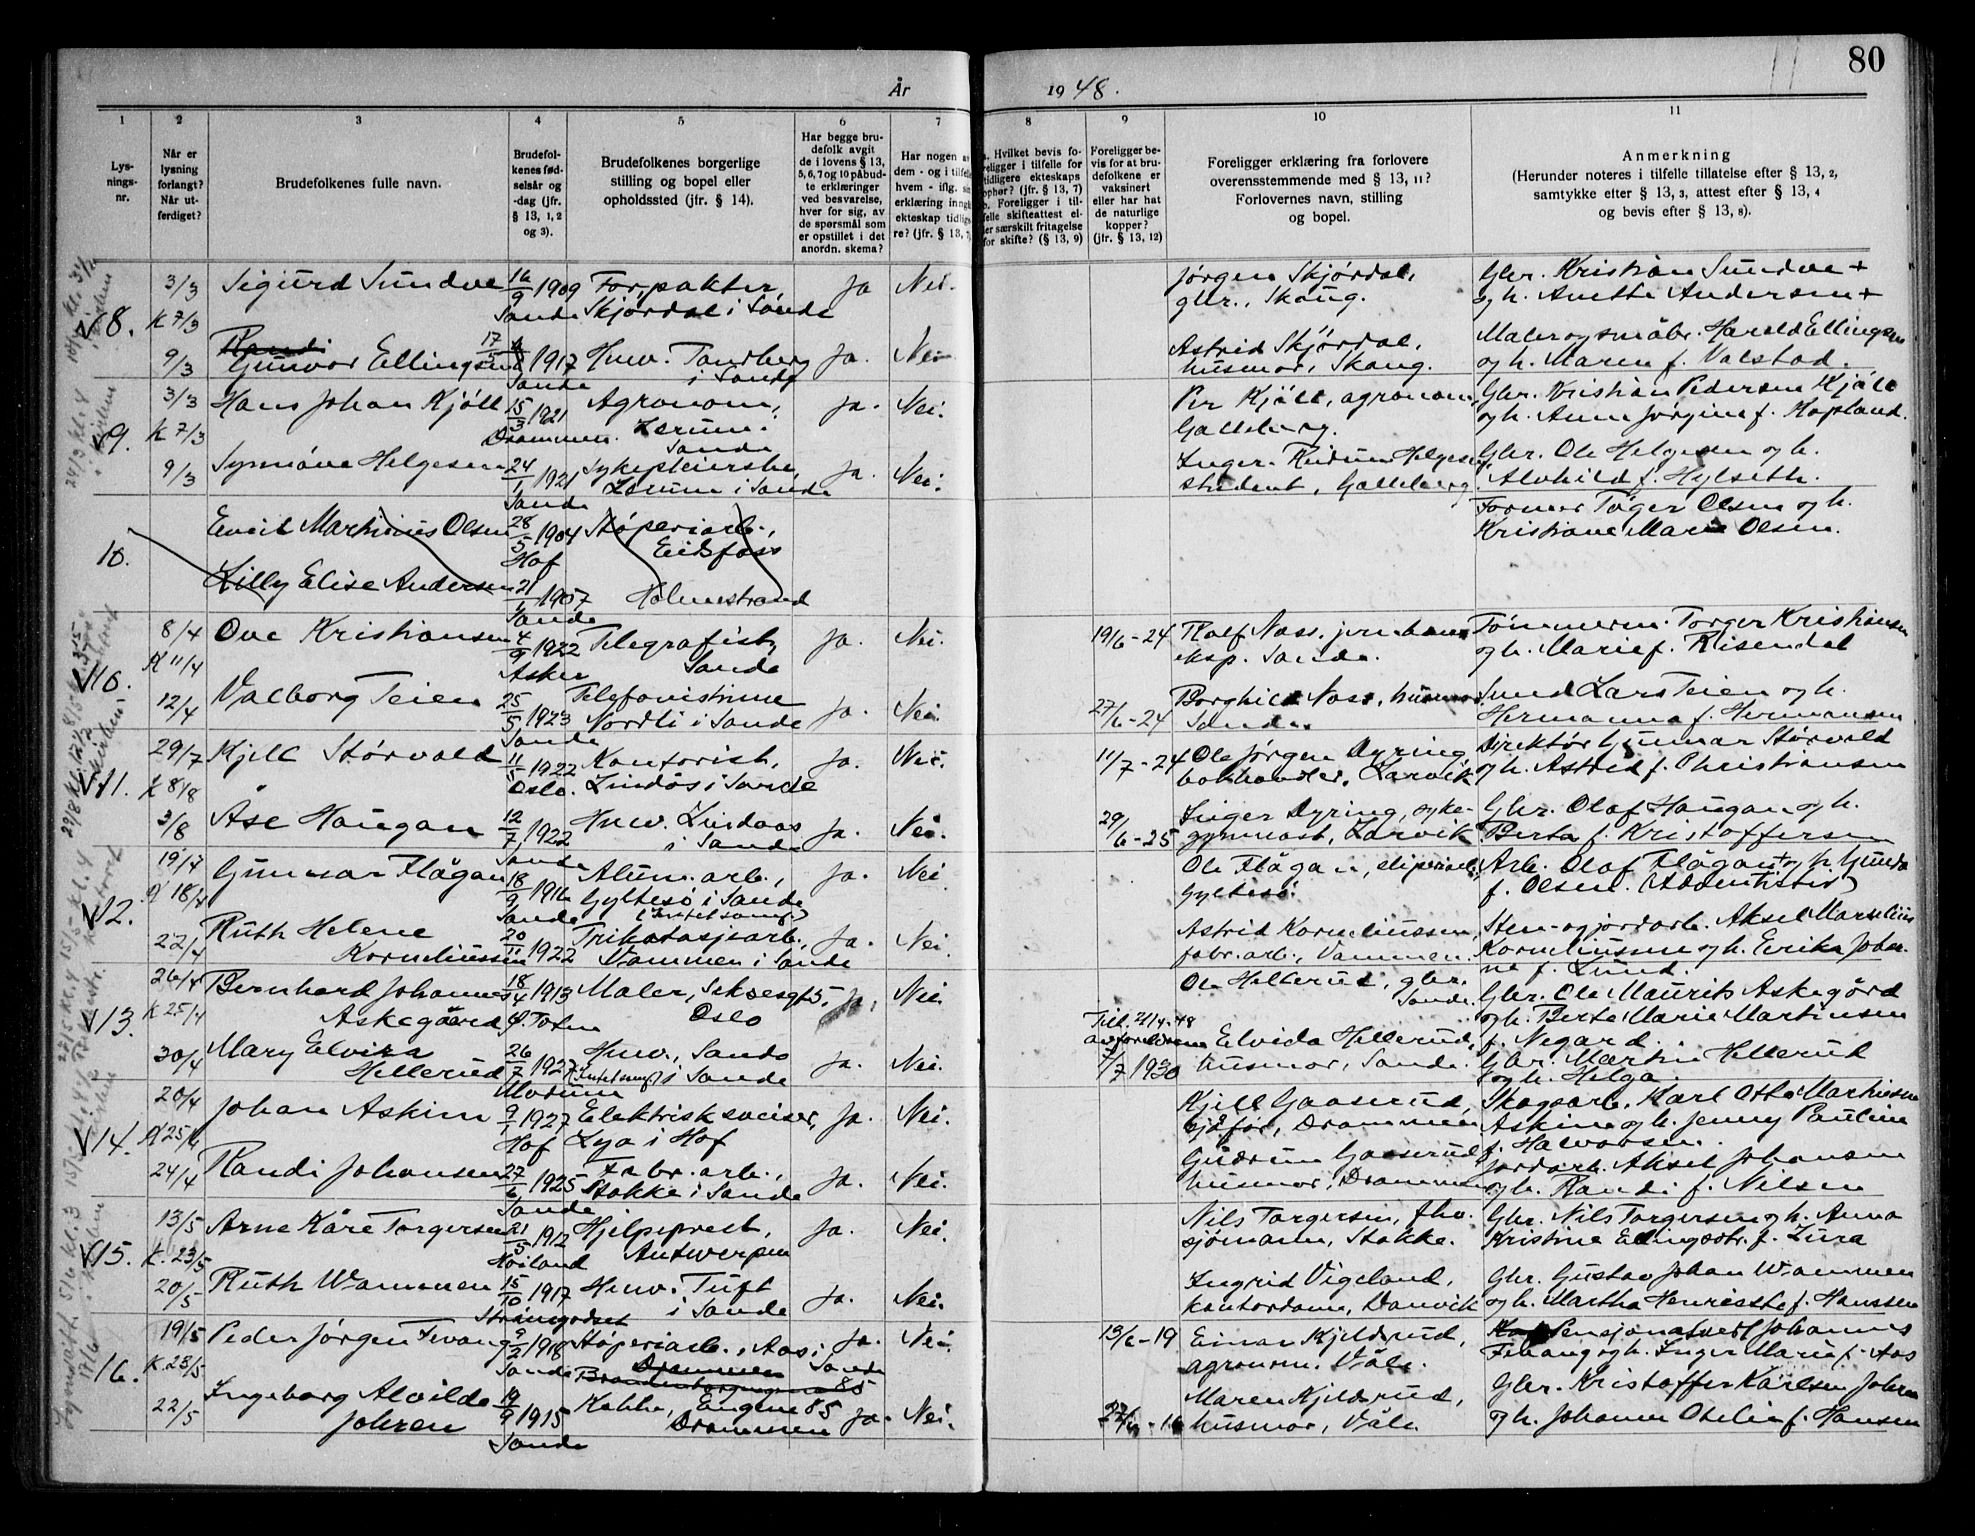 80
År 1948.
1 2 3 4 5 6 7 8 9 10 11
Lys-
nings-
nr.
Når er
lysning
forlangt?
Når ut-
ferdiget?
Brudefolkenes fulle navn.
Brudefol-
kenes fød-
selsår og
-dag (jfr.
§ 13, 1, 2
og 3).
Brudefolkenes borgerlige
stilling og bopel eller
opholdssted (jfr. § 14).
Har begge bru-
defolk avgit
de i lovens § 13,
5, 6, 7 og 10 påbud-
te erklæringer
ved besvarelse,
hver for sig, av
de spørsmål som
er opstillet i det
anordn. skema?
Har nogen av
dem - og i tilfelle
hvem - iflg. sin
erklæring inngått
ekteskap tidlige-
re? (jfr. § 13, 7)
a. Hvilket bevis fo-
religger i tilfelle for
tidligere ekteskaps
ophør? (jfr. § 13, 7)
b. Foreligger i til-
felle skifteattest el-
ler særskilt fritagelse
for skifte? (§ 13, 9)
Foreligger be-
vis for at bru-
defolkene er
vaksinert
eller har hat
de naturlige
kopper?
(jfr. § 13, 12)
Foreligger erklæring fra forlovere
overensstemmende med § 13, 11?
Forlovernes navn, stilling
og bopel.
Anmerkning
(Herunder noteres i tilfelle tillatelse efter § 13, 2,
samtykke efter § 13, 3, attest efter § 13, 4
og bevis efter § 13, 8).
8. 3/3 Sigurd Sundve 16/9 1909 Forpakter, Ja Nei. Jørgen Skjørdal, Gbr. Kristian Sundve +
K 7/3 Sande Skjørdal i Sande gbr., Skaug. og h. Anette Andersen +
9/3 Gunvor Ellingsen 17/5 1917 Husv. Tandberg Ja. Nei Astrid Skjørdal, Maler og småbr. Harald Ellingsen
Sande i Sande husmor, Skaug. og h. Maren f. Valstad.
9. 3/3 Hans Johan Kjøll 15/3 1921 Agronom, Ja. Nei. Per Kjøll, agronom, Gbr. Kristian Pedersen Kjøll
K 7/3 Drammen. Lerum i Sande Galleberg. og h. Anna Jørgine f. Kopland.
9/3 Synnøve Helgesen 24/1 1921 Sykepleierske, Ja. Nei. Inger Reidun Helgesen, Gbr. Ole Helgesen og h.
Sande Lerum i Sande student, Galleberg. Alvhild f. Hylseth.
10. Emil Martinius Olsen 28/5 1904 Støperiarb., Former Tøger Olsen og h.
Hof Eidsfoss Kristiane Marie Olsen.
Lilly Elise Andersen 21/1 1907 Holmestrand
Sande
10. 8/4 Ove Kristiansen 4/9 1922 Telegrafist, Ja. Nei. 19/6-24 Rolf Nass, jernbane- Tømmerm. Torger Kristiansen
K 11/4 Asker Sande eksp. Sande. og h. Marie f. Risendal
12/4 Valborg Teien 25/5 1923 Telefonistinne Ja. Nei. 27/6-24 Borghild Nass, husmor Smed Lars Teien og h.
Sande Nordli i Sande Sande. Hermanna f. Hermansen
11. 29/7 Kjell Størvold 11/5 1922 Kontorist, Ja. Nei. 11/7-24 Ole Jørgen Dyring, Direktør Gunnar Størvold
K 8/8 Oslo. Lindås i Sande bokhandler, Larvik og h. Astrid f. Christiansen
3/8 Åse Haugan 12/7 1922 Husv. Lindaas Ja. Nei. 29/6-25 Inger Dyring, syke- Gbr. Olaf Haugan og h.
Sande i Sande gymnast, Larvik Berta f. Kristoffersen
12. 19/4 Gunnar Flågan 18/9 1916 Alum. arb., Ja. Nei Ole Flågan, sliperiarb. Arb. Olaf Flågan + og h. Gunda
K 18/4 Sande Gyltesø i Sande Gyltesø. f. Olsen. (Adventister)
22/4 Ruth Helene 20/11 1922 Trikotasjearb., Ja. Nei Astrid Korneliussen, Sten- og jordarb. Aksel Marselius
Korneliussen Vammen i Sande fabr.arb., Vammen. Korneliussen og h. Erika Johan-
ne f. Lund.
13. 26/4 Bernhard Johannes 18/4 1913 Maler, Ja. Nei. Ole Hellerud, gbr. Gbr. Ole Maurits Askegård
K 25/4 Askegård Ø. Toten Oslo Sande. og h. Berte Marie Martinsen
f. Negard.
30/4 Mary Elvira 26/7 1927 Husv., Sando Ja. Nei. 2/7 1930 Elvida Hellerud, Gbr. Martin Hellerud
Hellerud Modum i Sande husmor, Sande. og h. Helga.
14. 20/4 Johan Askim 9/1 1927 Elektrisksveiser, Ja. Nei. Kjell Gaaserud, Skogsarb. Karl Otto Martinsen
K 25/4 Hof Lya i Hof sjåfør, Drammen Askim og h. Jenny Pauline
f. Halvorsen.
24/4 Randi Johansen 27/6 1925 Fabr. arb., Ja. Nei. Gudrun Gaaserud, Jordarb. Aksel Johansen
Sande Stokke i Sande husmor, Drammen og h. Randi f. Nilsen
15. 13/5 Arne Kåre Torgersen 21/5 1912 Hjelpeprest, Ja. Nei. Nils Torgersen, fhv. Gbr. Nils Torgersen og h. Anna
K. 23/5 Høiland Antwerpen sjømann, Stokke. Kristine f. Lura
20/5 Ruth Wammen 15/10 1917 Husv. Tuft Ja. Nei. Ingrid Vigeland, Gbr. Gustav Johan Wammen
Strømgodset i Sande kontordame, Danvik og h. Martha Henriette f. Hanssen
16. 19/5 Peder Jørgen Fevang 9/2 1918 Støperiarb., Aas i Sande Ja. Nei. 13/6-19 Einar Kjeldsrud, Johannes
K. 23/5 Sande Drammen agronom. Våle. Fevang og h. Inger Marie f. Aas
22/5 Ingeborg Alvilde 19/9 1915 Kokke, Engene 85 Ja. Nei. 22/6-16 Maren Kjeldsrud, Gbr. Kristoffer Karlsen Johren
Johren Sande Drammen husmor, Våle. og h. Johanne Otelie f. Hansen